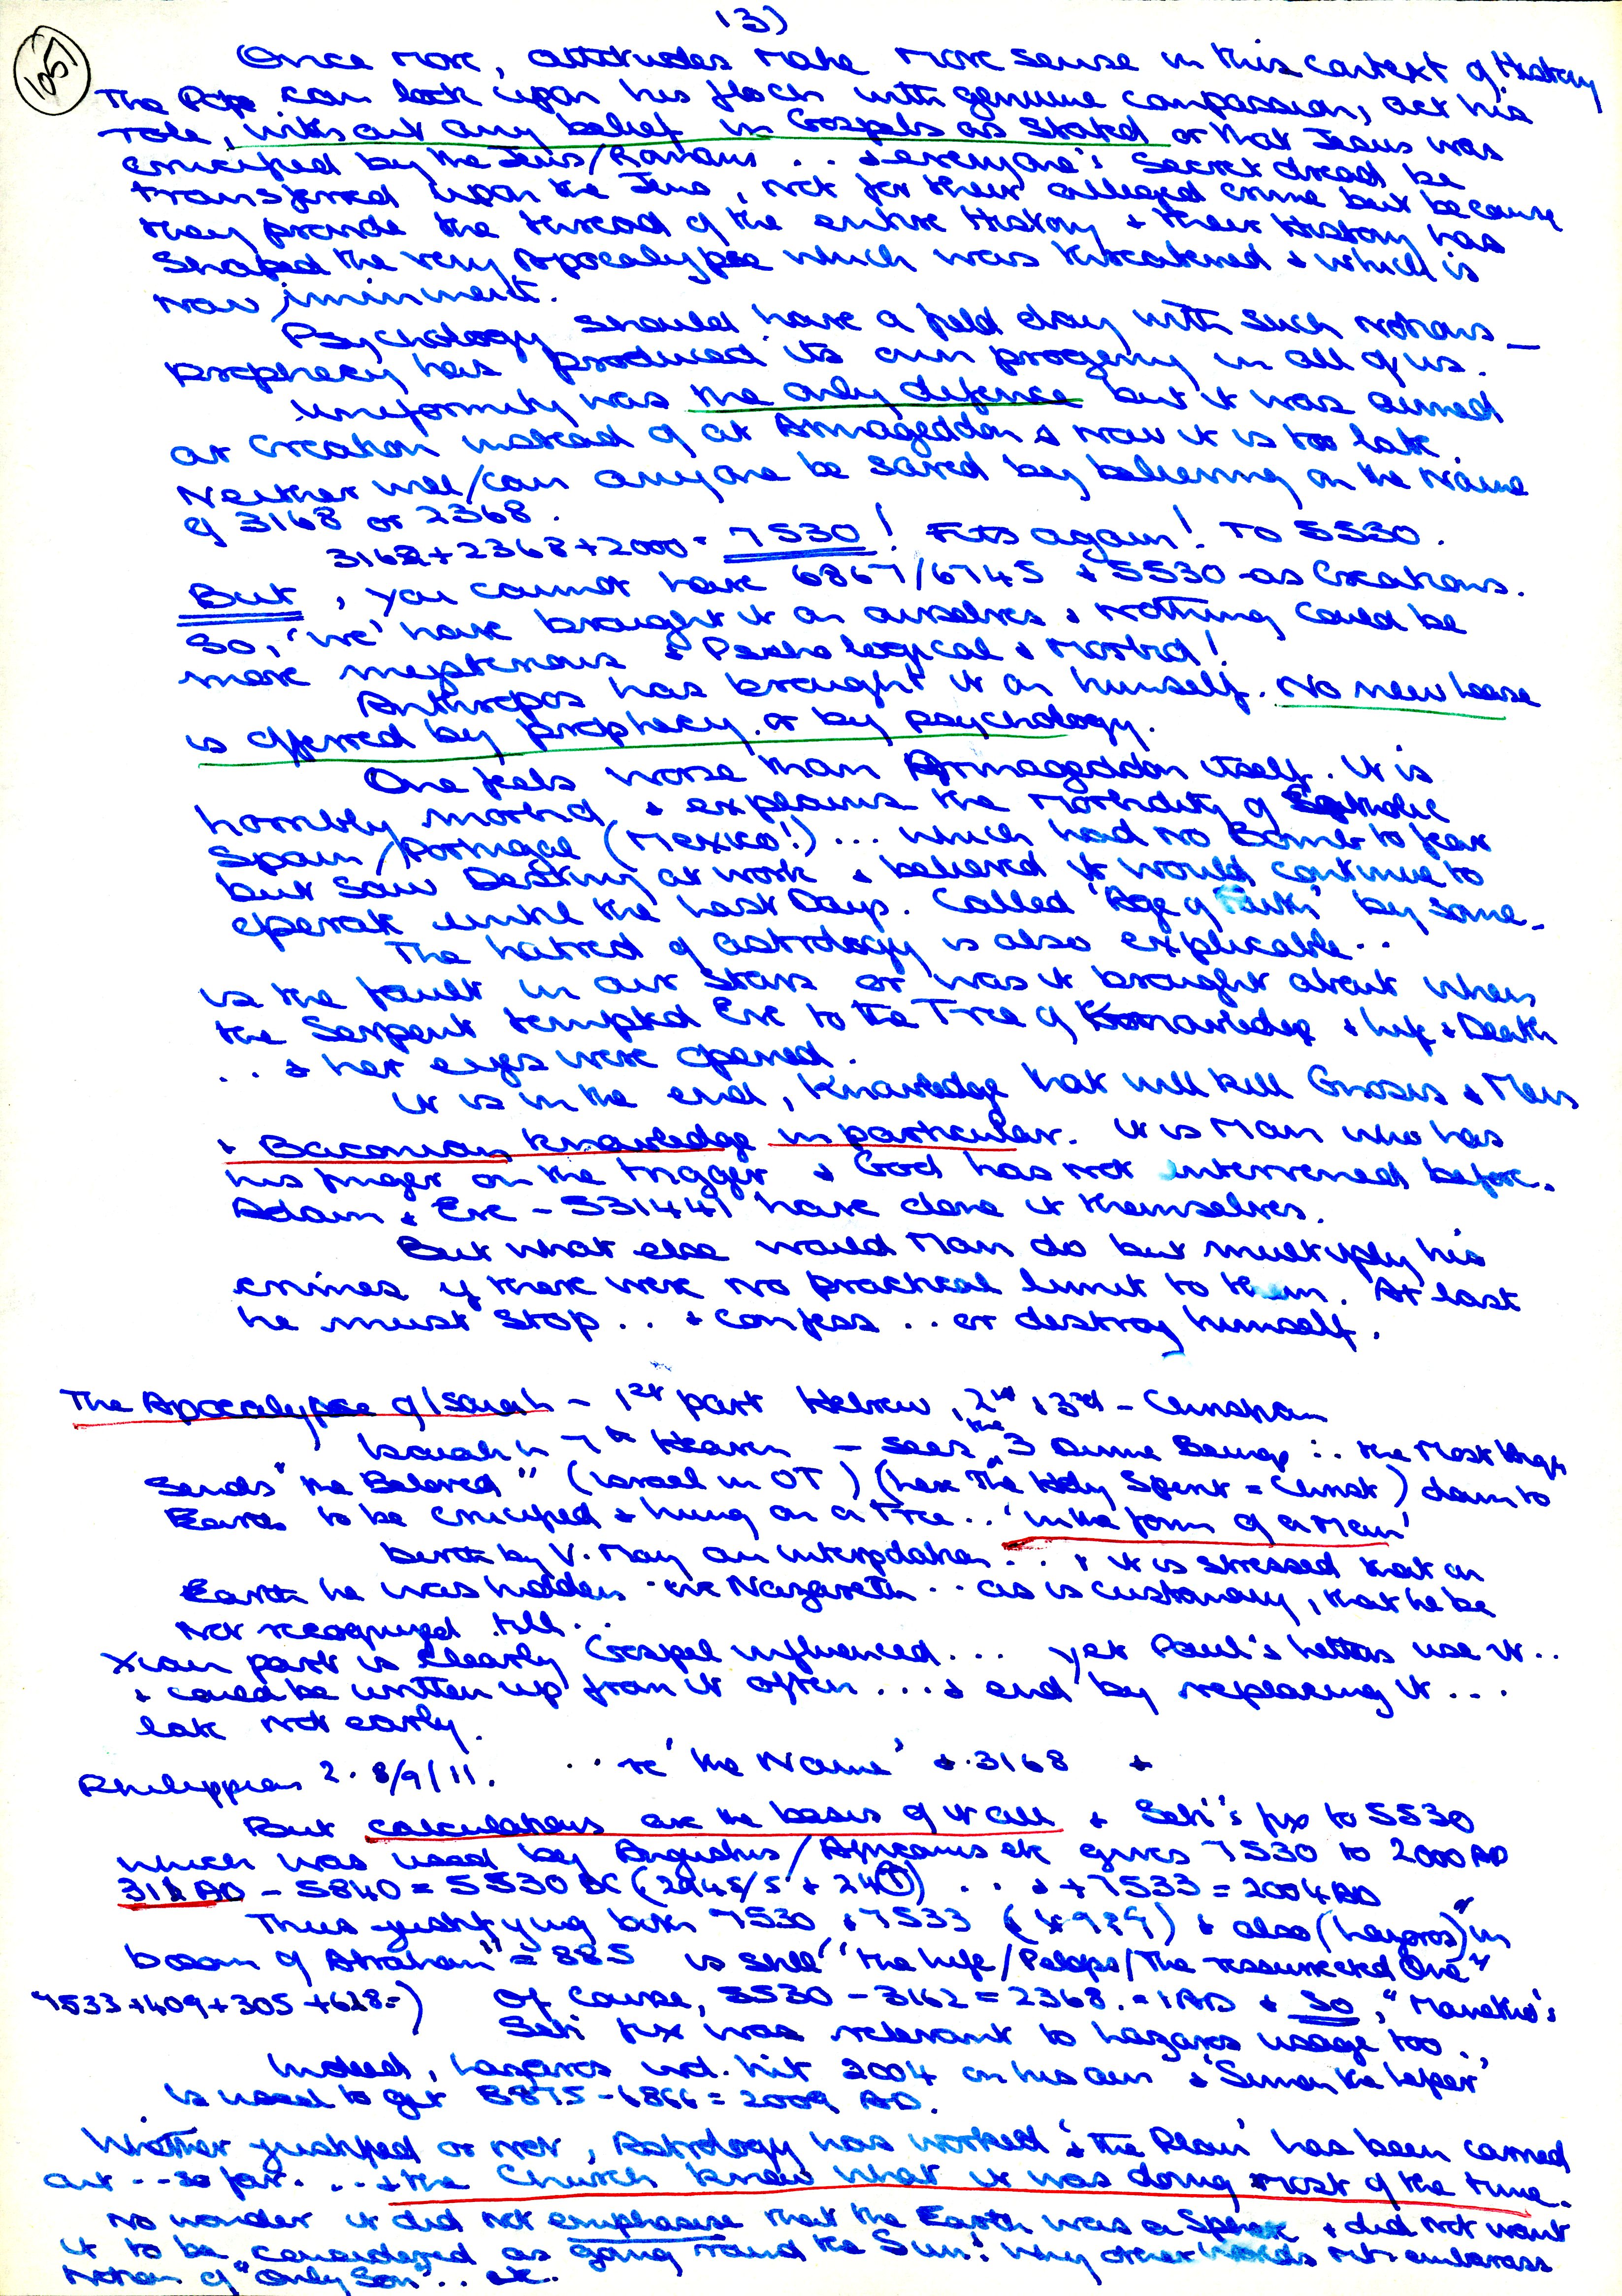 13)
1057
Once more, attitudes make more sense in this context of History
The Pope can look upon his flock with genuine compassion, act his
role, without any belief in Gospels as stated or that Jesus was
crucified by the Jews/Romans .. & everyone's secret dread be
transferred upon the Jews, not for their alleged crime but because
they provide the thread of the entire History & their History has
shaped the very Apocalypse which was threatened & which is
now imminent.
Psychology should have a field day with such notions _
prophecy has produced its own progeny in all of us.
Uniformity was the only defence but it was aimed
at Creation instead of at Armageddon & now it is too late.
Neither will/can anyone be saved by believing on the Name
of 3168 or 2368.
3162+2368+2000= 7530! Fits again! To 5530.
But, you cannot have 6867/6745 & 5530 as Creations.
So, 'we' have brought it on ourselves & nothing could be
more mysterious & Psychological & morbid!
Anthropos has brought it on himself. No new lease
is offered by prophecy or by psychology.
One feels worse than Armageddon itself. It is
horribly morbid & explains the morbidity of Catholic
Spain/Portugal (Mexico!) ... which had no Bomb to fear
but saw Destiny at work & believed it would continue to
operate until the Last Days. Called 'Age of Faith' by some _
The hatred of astrology is also explicable ..
is the fault in our Stars or was it brought about when
the Serpent tempted Eve to the Tree of Knowledge & Life & Death
.. & her eyes were opened.
It is in the end, knowledge that will kill Gnosis & Men
& Baconian knowledge in particular. It is Man who has
his finger on the trigger & God has not intervened before.
Adam & Eve - 531441 have done it themselves.
But what else would Man do but multiply his
crimes if there were no practical limit to them. At last
he must stop .. & confess .. or destroy himself.
The Apocalypse of Isaiah - 1st part Hebrew, 2nd & 3rd - Christian
Isaiah in 7th Heaven - sees the 3 Divine Beings :. the Most High
sends "the Beloved" (Israel in OT) (here The Holy Spirit = Christ) down to
Earth to be crucified & hung on a Tree .. 'in the form of a Man'
birth by V. Mary an interpolation ... & it is stressed that on
Earth he was hidden in Nazareth .. as is customary, that he be
not recognized till..
Xian part is clearly Gospel influenced ... yet Paul's letters use it ..
& could be written up from it often ... & end by replacing it ...
late not early.
Philippians 2. 8/9/11. .. re 'the Name' & 3168 +
But calculations are the basis of it all & Seti's fix to 5530
which was used by Augustus/Africanus etc gives 7530 to 2000 AD
311 AD - 5840 = 5530 BC (2945/5 & 24) .. & +7533 = 2004 AD
Thus justifying both 7530 & 7533 & also (Lazaros) "in
bosom of Abraham" = 885 is still "the Life/Pelops/The resurrected One"
7533+409+305+628=) Of Course, 5530 - 3162 = 2368. = 1 AD & So, "Manetho's
Seti' fix was relevant to Lazaros usage too.
Indeed, Lazaros wd. hit 2004 on his own & 'Simon the Leper'
is used to get 8875 - 6866 = 2009 AD.
Whether justified or not, Astrology has worked & 'the Plan' has been carried
out -- so far. ... & the Church knew what it was doing most of the time.
No wonder it did not emphasise that the Earth was a Sphere & did not want
it to be considered as going round the Sun! Why other Worlds might embarass
notion of "Only Son" .. etc.